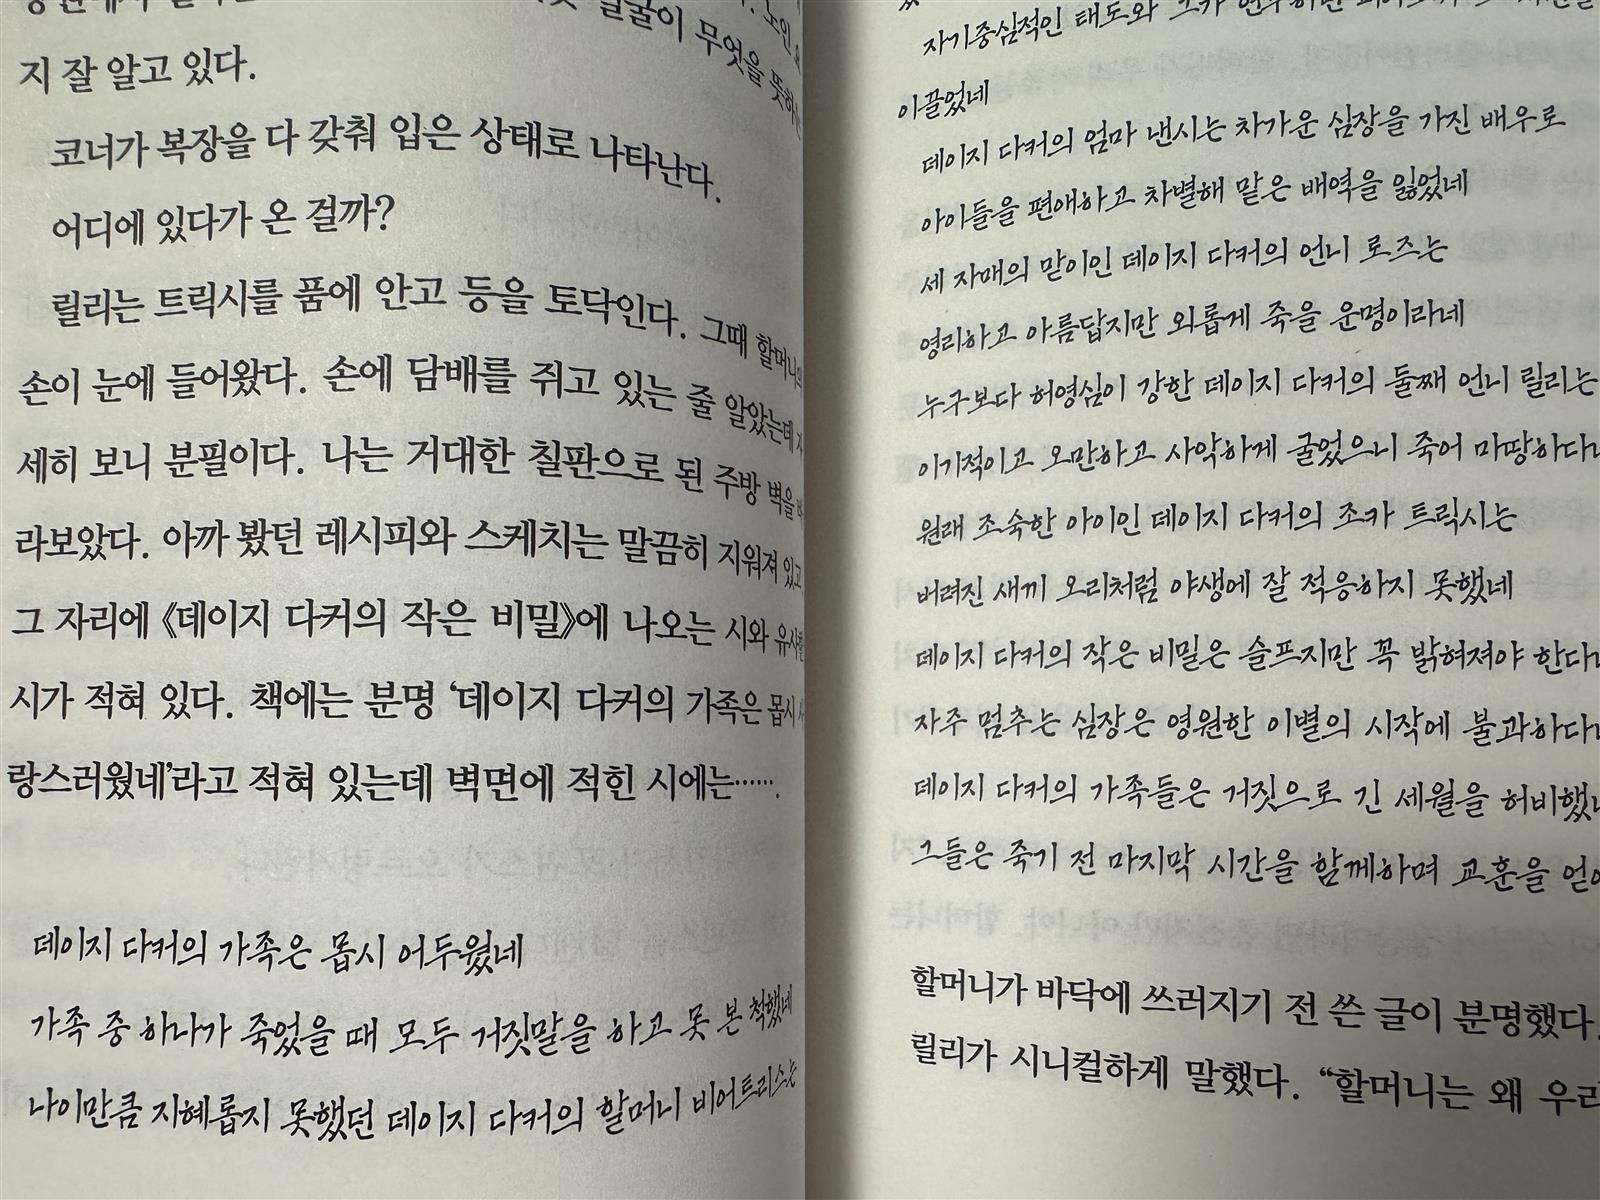 얼굴이 무엇을 뜻하는
지 잘 알고 있다.
코너가 복장을 다 갖춰 입은 상태로 나타난다.
어디에 있다가 온 걸까?
릴리는 트릭시를 품에 안고 등을 토닥인다. 그때 할머니의
손이 눈에 들어왔다. 손에 담배를 쥐고 있는 줄 알았는데 자
세히 보니 분필이다. 나는 거대한 칠판으로 된 주방 벽을 바
라보았다. 아까 봤던 레시피와 스케치는 말끔히 지워져 있고,
그 자리에 《데이지 다커의 작은 비밀》에 나오는 시와 유사한
시가 적혀 있다. 책에는 분명 ‘데이지 다커의 가족은 몹시 사
랑스러웠네’라고 적혀 있는데 벽면에 적힌 시에는…….
데이지 다커의 가족은 몹시 어두웠네
가족 중 하나가 죽었을 때 모두 거짓말을 하고 못 본 척했네
나이만큼 지혜롭지 못했던 데이지 다커의 할머니 비어트리스는
자기중심적인 태도와
이끌었네
데이지 다커의 엄마 낸시는 차가운 심장을 가진 배우로
아이들을 편애하고 차별해 맡은 배역을 잃었네
세 자매의 맏이인 데이지 다커의 언니 로즈는
영리하고 아름답지만 외롭게 죽을 운명이라네
누구보다 허영심이 강한 데이지 다커의 둘째 언니 릴리는
이기적이고 오만하고 사악하게 굴었으니 죽어 마땅하다
원래 조숙한 아이인 데이지 다커의 조카 트릭시는
버려진 새끼 오리처럼 야생에 잘 적응하지 못했네
데이지 다커의 작은 비밀은 슬프지만 꼭 밝혀져야 한다
자주 멈추는 심장은 영원한 이별의 시작에 불과하다
데이지 다커의 가족들은 거짓으로 긴 세월을 허비했
그들은 죽기 전 마지막 시간을 함께하며 교훈을
할머니가 바닥에 쓰러지기 전 쓴 글이 분명했다.
릴리가 시니컬하게 말했다. “할머니는 왜 우리